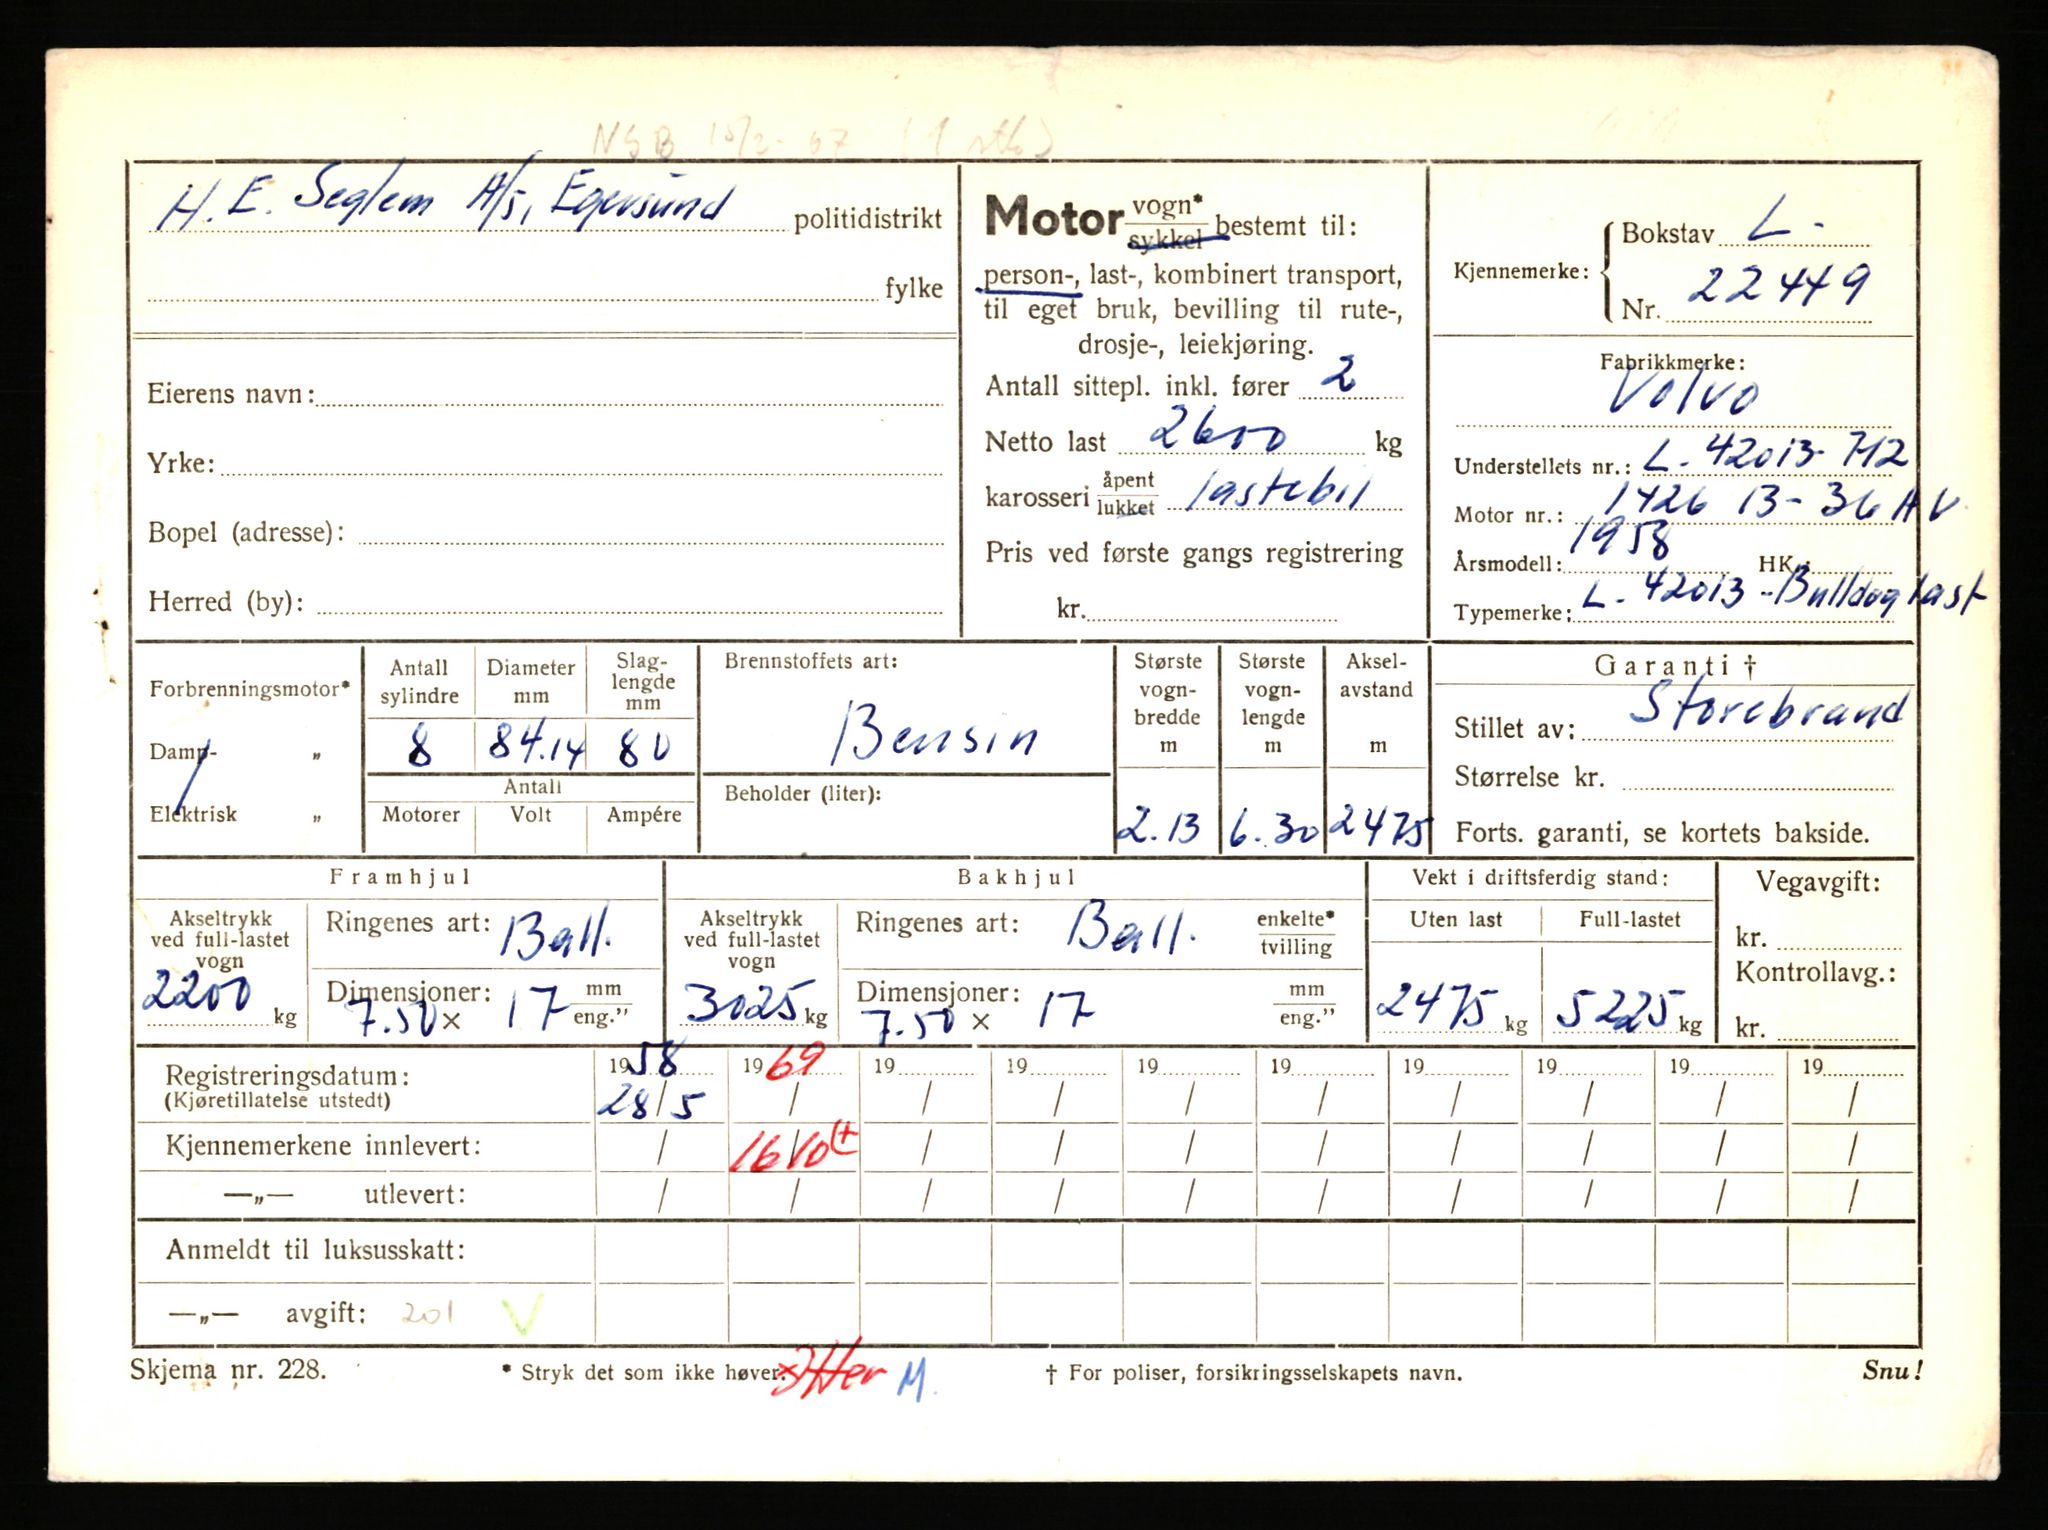 NSB 15/2-67 (1 stk)
H. E. Seglem A/S, Egersund politidistrikt
fylke
Eierens navn:
Yrke:
Bopel (adresse):
Herred (by):
Motor vogn* sykkel bestemt til:
person-, last-, kombinert transport,
til eget bruk, bevilling til rute-,
drosje-, leiekjøring.
Antall sittepl. inkl. fører 2
Netto last 2600 kg
karosseri åpent lukket lastebil
Pris ved første gangs registrering
kr.
Kjennemerke: Bokstav L-
Nr. 22449
Fabrikkmerke:
Volvo
Understellets nr.: L-42013-712
Motor nr.: 1426 13-36 HV
Årsmodell: 1958 HK.:
Typemerke: L-42013-Bulldog last
Forbrenningsmotor*
Damp- „
Elektrisk „
Antall sylindre
Diameter mm
Slag- lengde mm
8 84.14 80
Antall
Motorer Volt Ampére
Brennstoffets art:
Bensin
Beholder (liter):
Største vogn- bredde m
2.13
Største vogn- lengde m
6.30
Aksel- avstand m
2475
Garanti †
Stillet av: Storebrand
Størrelse kr.
Forts. garanti, se kortets bakside.
Framhjul
Akseltrykk ved full-lastet vogn
2200 kg
Ringenes art: Ball.
Dimensjoner: 7.50 × 17 mm eng."
Bakhjul
Akseltrykk ved full-lastet vogn
3025 kg
Ringenes art: Ball. enkelte* tvilling
Dimensjoner: 7.50 × 17 mm eng."
Vekt i driftsferdig stand:
Uten last Full-lastet
2475 kg 5225 kg
Vegavgift:
kr.
Kontrollavg.:
kr.
Registreringsdatum: 1958 1969 19 19 19 19 19 19 19 19
(Kjøretillatelse utstedt) 28/5 / / / / / / / / /
Kjennemerkene innlevert: / 16/10 (+ / / / / / / / /
—„— utlevert: / / / / / / / / / /
Anmeldt til luksusskatt:
—„— avgift: 201 V
Skjema nr. 228.
* Stryk det som ikke høver.
M.
† For poliser, forsikringsselskapets navn.
Snu!